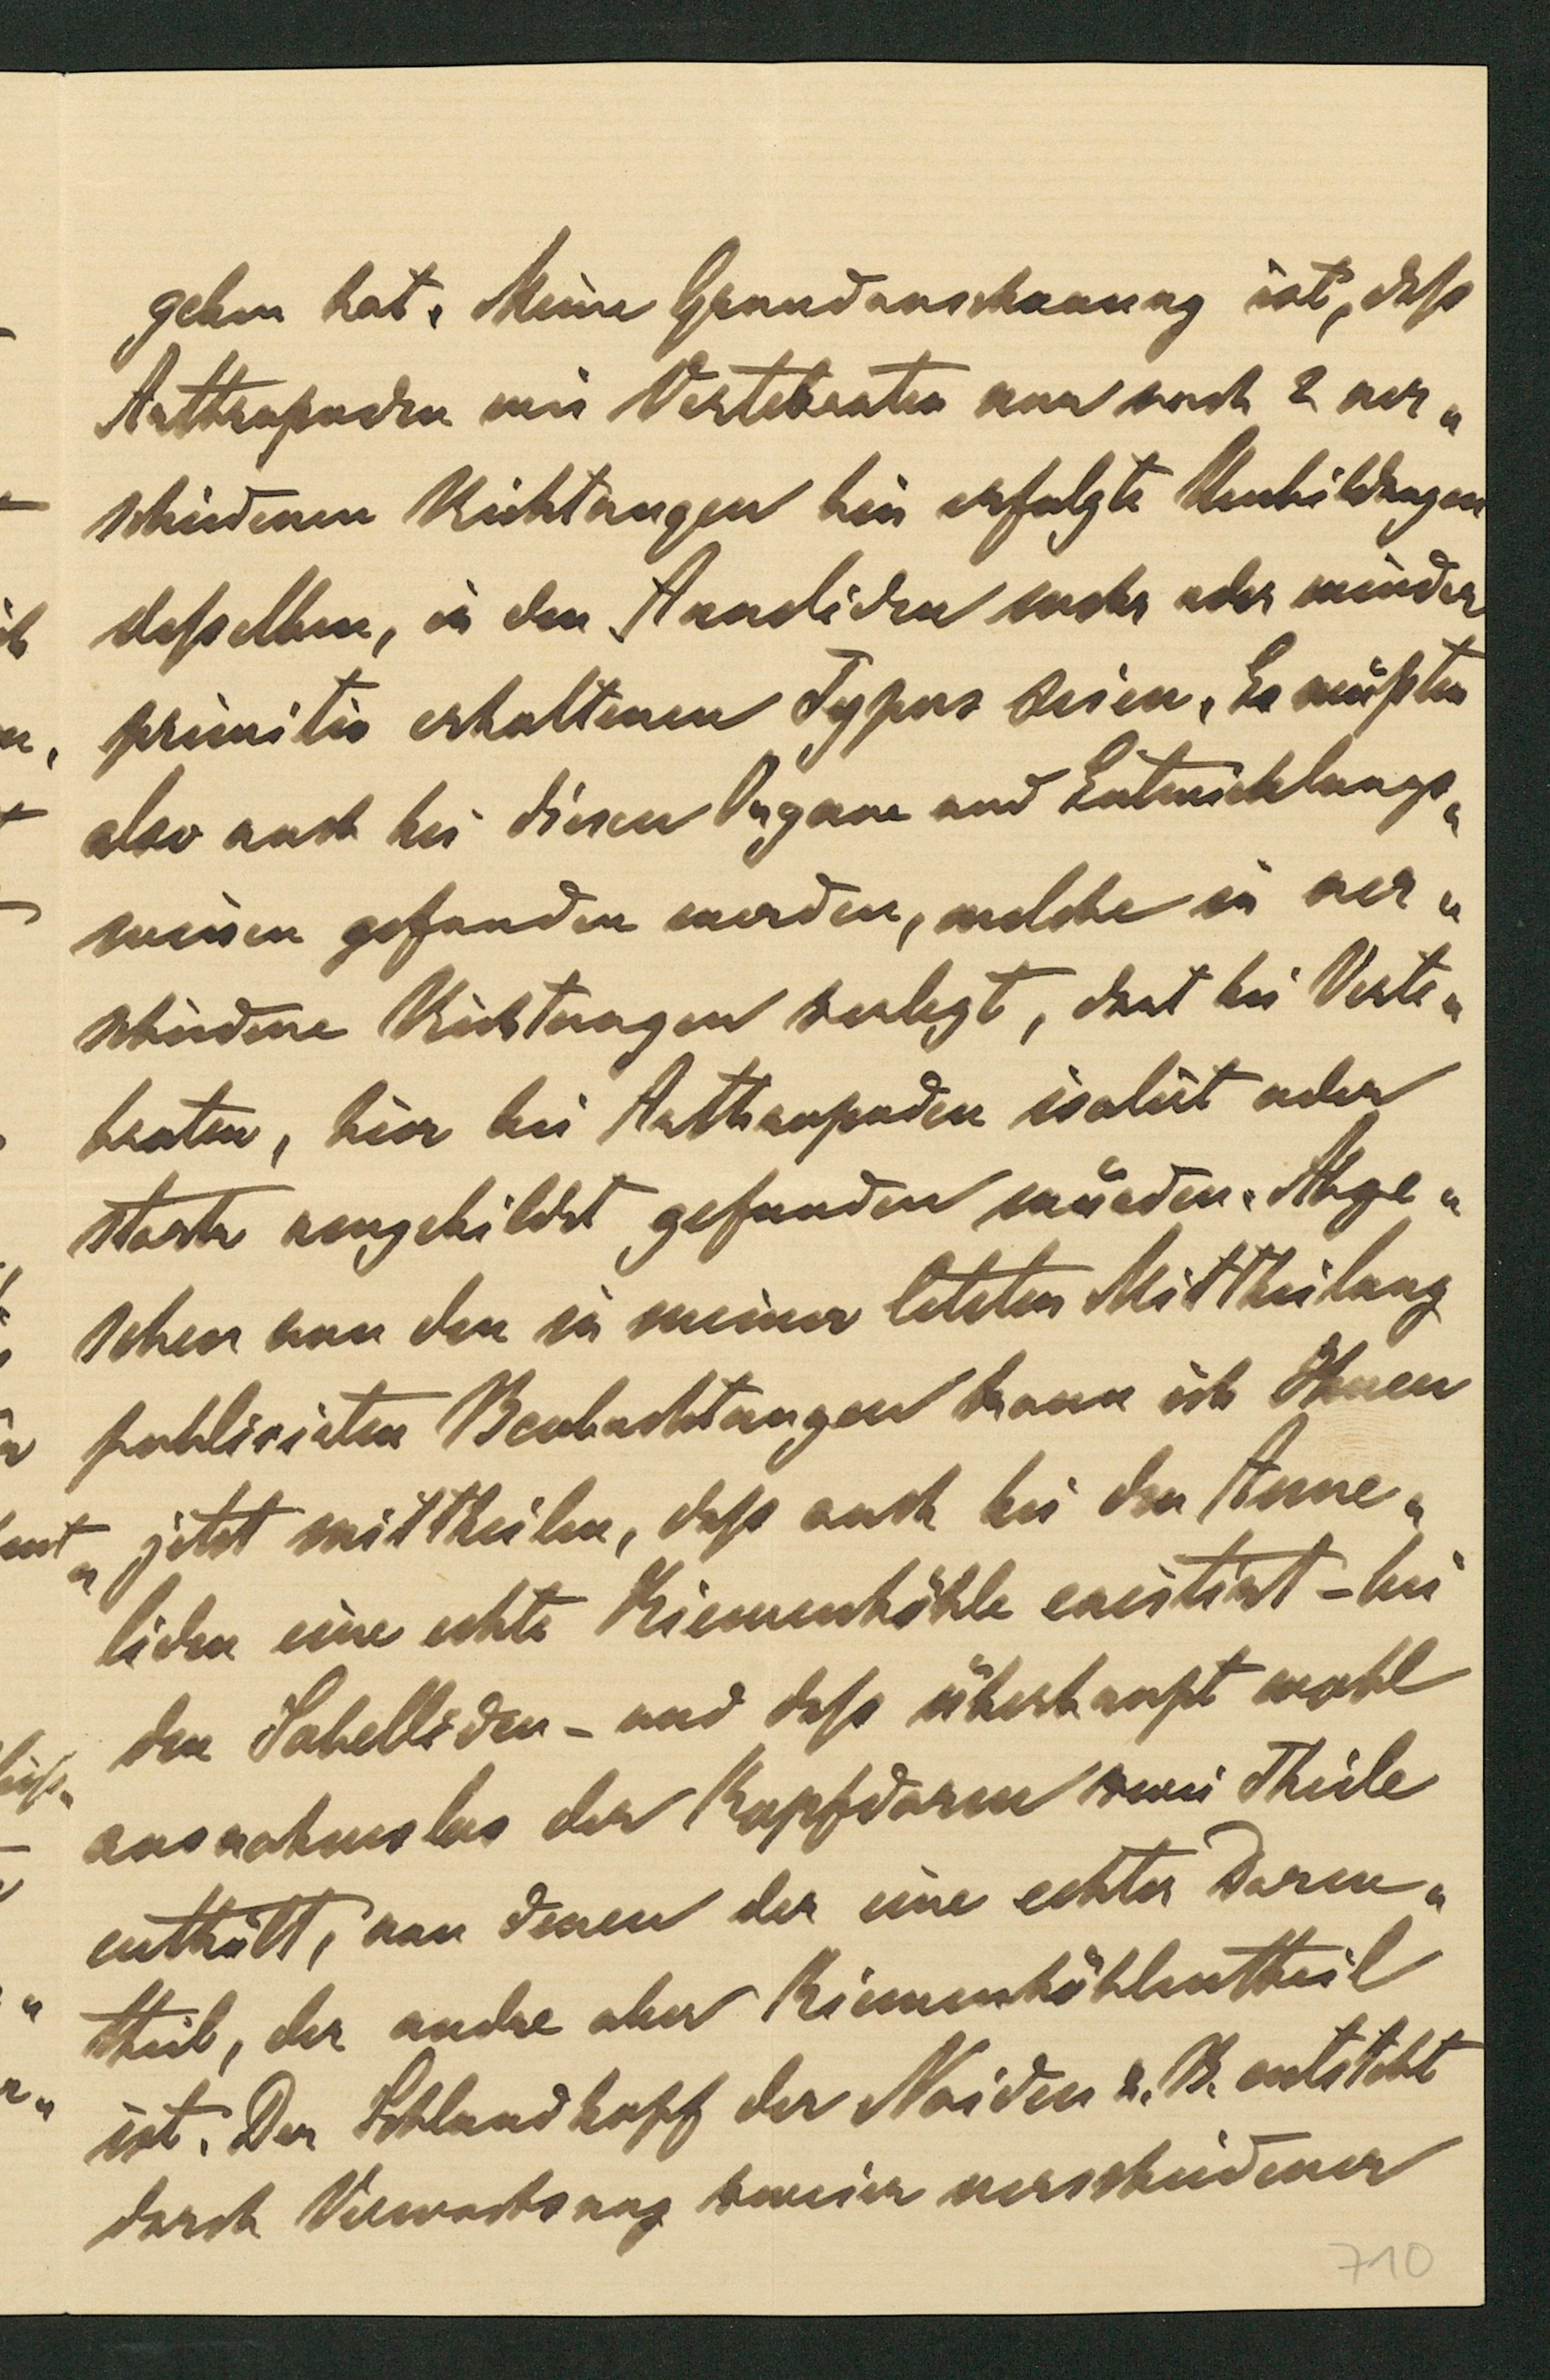 geben hat. Meine Grundanschauung ist, daß
Arthropoden wie Vertebraten nur nach 2 ver„
schiedenen Richtungen hin erfolgte Umbildungen
desselben, in den Anneliden mehr oder minder
primitiv erhaltenen Typus seien. Es müßten
also auch bei diesen Organe und Entwicklungs„
weisen gefunden werden, welche in ver„
schiedene Richtungen zerlegt, dort bei Verte„
braten, hier bei Arthropoden isolirt oder
stark umgebildet gefunden würden. Abge„
sehen von den in meiner letzten Mittheilung
publicirten Beobachtungen kann ich Ihnen
jetzt mittheilen, daß auch bei den Anne„
liden eine echte Kiemenhöhle existirt – bei
den Sabelliden – und daß überhaupt wohl
ausnahmslos der Kopfdarm zwei Theile
enthält, von denen der eine echter Darm„
theil, der andre aber Kiemenhöhlentheil
ist. Der Schlundkopf der Naiden z. B. entsteht
durch Verwachsung zweier verschiedener
710